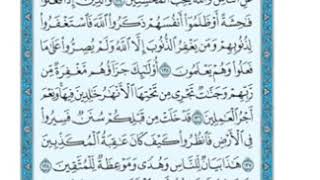 عَنِ النَّاسِ وَاللَّهُ يُحِبُّ الْمُحْسِنِينَ ١٣٤ وَالَّذِينَ إِذَا فَعَلُوا
فَاحِشَةً أَوْ ظَلَمُوا أَنفُسَهُمْ ذَكَرُوا اللَّهَ فَاسْتَغْفَرُوا
لِذُنُوبِهِمْ وَمَن يَغْفِرُ الذُّنُوبَ إِلَّا اللَّهُ وَلَمْ يُصِرُّوا عَلَىٰ مَا
فَعَلُوا وَهُمْ يَعْلَمُونَ ١٣٥ أُولَٰئِكَ جَزَاؤُهُم مَّغْفِرَةٌ مِّن
رَّبِّهِمْ وَجَنَّاتٌ تَجْرِي مِن تَحْتِهَا الْأَنْهَارُ خَالِدِينَ فِيهَا وَنِعْمَ
أَجْرُ الْعَامِلِينَ ١٣٦ قَدْ خَلَتْ مِن قَبْلِكُمْ سُنَنٌ فَسِيرُوا
فِي الْأَرْضِ فَانظُرُوا كَيْفَ كَانَ عَاقِبَةُ الْمُكَذِّبِينَ
١٣٧ هَٰذَا بَيَانٌ لِّلنَّاسِ وَهُدًى وَمَوْعِظَةٌ لِّلْمُتَّقِينَ